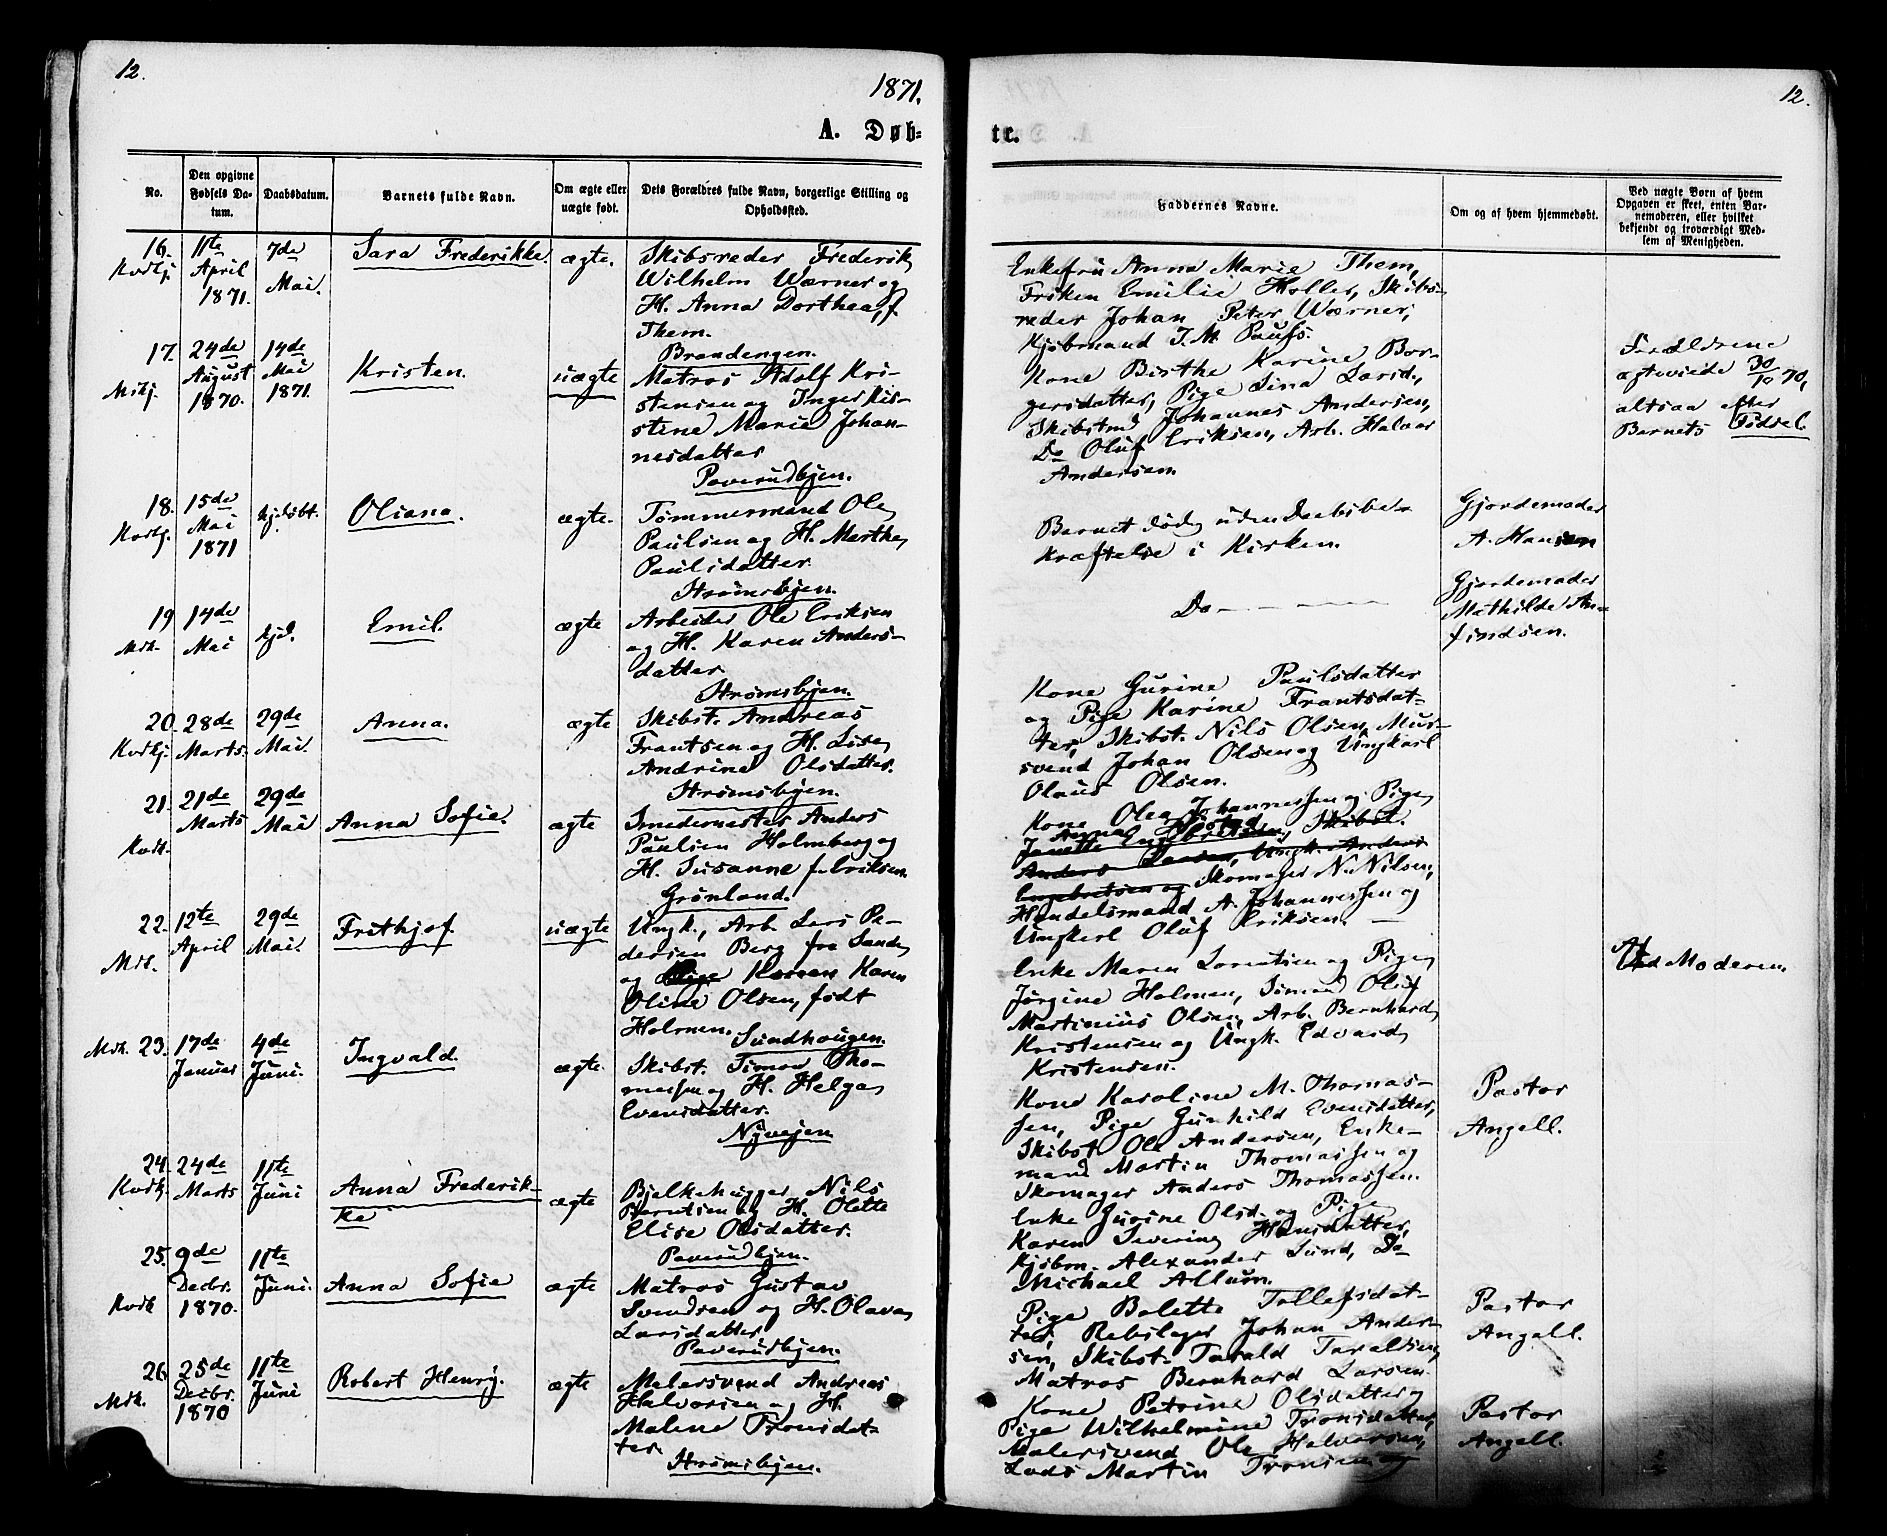 12.
1871.
A. Døb-
No.
Den opgivne Fødsels Datum.
Daabsdatum.
Barnets fulde Navn.
Om ægte eller uægte født.
Dets Forældres fulde Navn, borgerlige Stilling og Opholdssted.
16.
Kvdkj.
11te
April
1871.
7de
Mai.
Sara Frederikke.
ægte.
Skibsreder Frederik
Wilhelm Wærner og
H. Anna Dorthea, f.
Them.
Brandengen.
17.
Mskj.
24de
August
1870.
14de
Mai
1871.
Kristen.
uægte
Matros Adolf Kri-
stensen og Inger Kis-
stine Marie Johan-
nesdatter
Paverudbyen.
18.
Kvdkj.
15de
Mai
1871
hjdøbt.
Oliana.
ægte.
Tømmermand Ole
Paulsen og H. Marthe
Paulsdatter
Strømsbyen.
19
Mdk.
14de
Mai
hjd.
Emil.
ægte
Arbeider Ole Eriksen
og H. Karen Anders-
datter
Strømsbyen.
20.
Kvdkj.
28de
Marts.
29de
Mai.
Anna.
ægte
Skibst. Andreas
Frantsen og H. Lise
Andrine Olsdatter.
Strømsbyen.
21.
Kvdk.
21de
Marts
29de
Mai
Anna Sofie.
ægte
Smedemester Anders
Paulsen Holmberg og
H. Susanne f. Eriksen.
Grønland.
22.
Mdk.
12te
April
29de
Mai.
Frithjof.
uægte
Ungk., Arb. Lars Pe-
dersen Berg fra Sande
og Pige Karen
Oline Olsen, født
Holmen.
Sundhaugen.
Mdk. 23.
17de
Januar
4de
Juni.
Ingvald.
ægte.
Skibst. Simon Tho-
massen og H. Helga
Evensdatter.
Nyvejen
24.
Kvdk.
24de
Marts
11te
Juni
Anna Frederik-
ke
ægte
Bjelkehugger Nils
Berntsen og H. Olette
Elise Olsdatter.
Paverudbyen.
25.
Kvdk
9de
Decbr.
1870.
11te
Juni.
Anna Sofie
ægte
Matros Gustav
Svendsen og H. Olava
Larsdatter
Paverudbyen.
26.
Mdk.
25de
Decbr.
1870
11te
Juni
Robert Henry.
ægte
Malersvend Andreas
Halvorsen og H.
Malene Tronsdat-
ter
Strømsbyen.
12.
te.
Faddernes Navne.
Om og af hvem hjemmedøbt.
Ved uægte Børn af hvem
Opgaven er skeet, enten Bar-
nemoderen, eller hvilket
bekjendt og troværdigt Med-
lem af Menigheden.
Enkefru Anna Marie Them,
Frøken Emilie Holler, Skibs-
reder Johan Peter Wærner,
Kjøbmand J. M. Pauss.
Kone Birthe Karine Bor-
gersdatter, Pige Lina
Skibstmd Johannes Andersen,
Do Oluf Eriksen, Arb. Halvor
Andersen
Forældrene
ægteviede 30/12 70,
altsaa efter
Barnets Fødsel.
Barnet døde uden Daabsbe-
kræftelse i Kirken.
Gjordemoder
A. Hansen
Do - - - -
Gjordemoder
Mathilde An-
findsen.
Kone Gurine Paulsdatter
og Pige Karine Frantsdat-
ter, Skibst. Nils Olsen, Mur-
svend Johan Olsen og Ungkarl
Olaus Olsen.
Kone Olea Johannessen og Pige
Anna
Janette Engebretsen, Skibst.
Anders Larsen, Ungk. Anders
Engebretsen og Skomager N. Nilsen,
Handelsmand A. Johannessen og
Ungkarl Oluf Eriksen. —
Enke Maren Lorentsen og Pige
Jørgine Holmen, Sømand Oluf
Martinius Olsen, Arb. Bernhard
Kristensen og Ungk. Edvard
Kristensen.
Af Moderen.
Kone Karoline M. Thomas-
sen, Pige Gunhild Evensdatter,
Skibst Ole Andersen, Enke-
mand Martin Thomassen og
Skomager Anders Thomassen.
Pastor
Angell.
Enke Gurine Olsd. og Pige
Karen Severine Hansdatter,
Kjøbm. Alexander Lund, Do
Michael Allum.
Pige Bolette Tollefsdat-
ter, Rebslager Johan Ander-
sen, Skibst. Tarald Taraldsen,
Matros Bernhard Larsen.
Pastor
Angell.
Kone Petrine Olsdatter
Pige Wilhelmine Tronsdatter,
Malersvend Ole Halvorsen,
Lods Martin Tronsen og
Pastor
Angell.